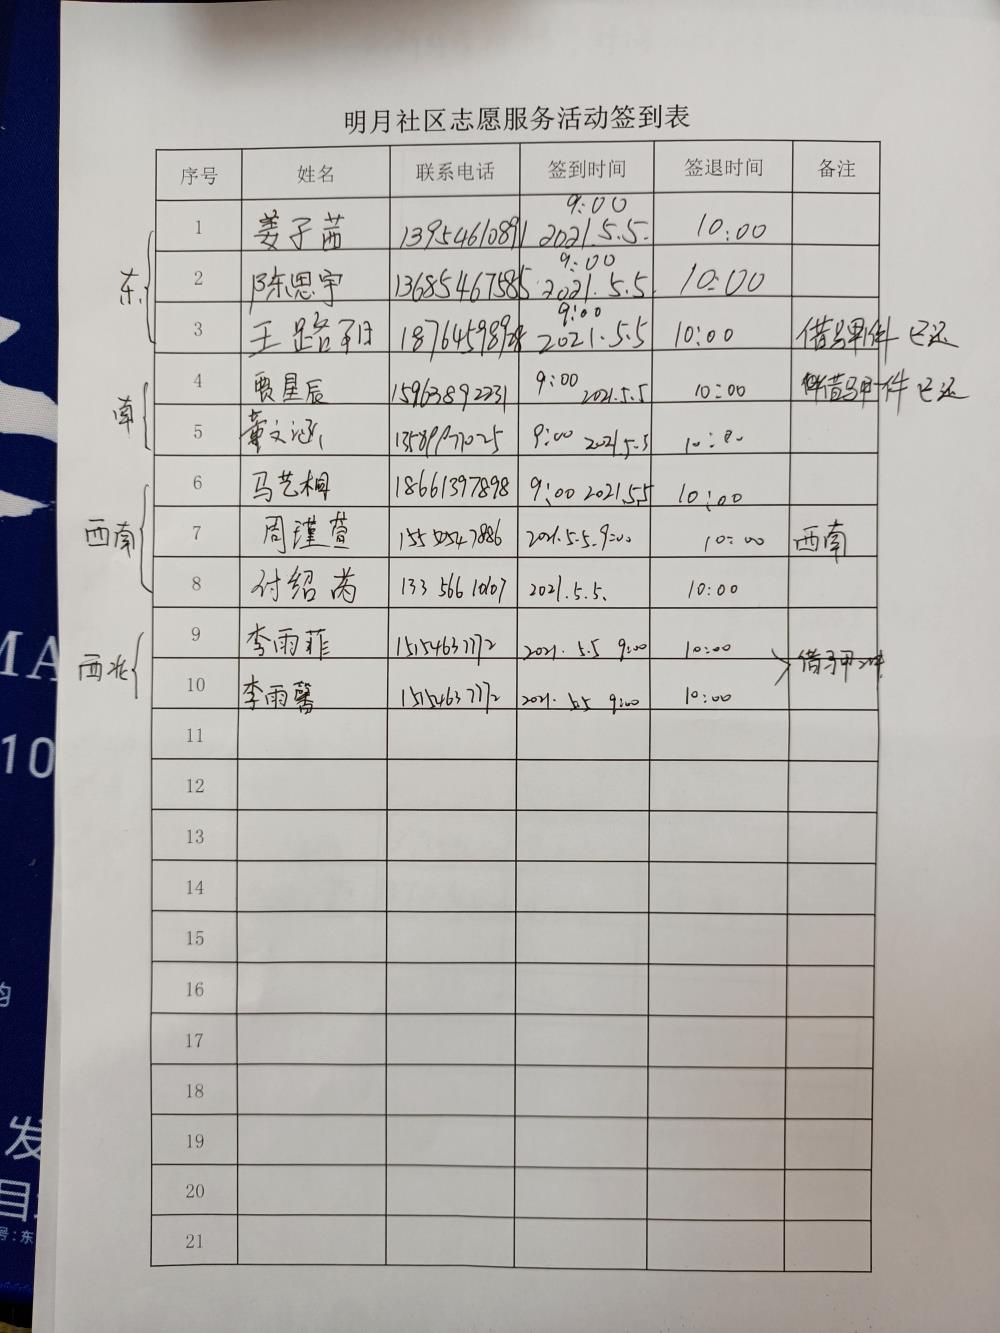 明月社区志愿服务活动签到表
序号 姓名 联系电话 签到时间 签退时间 备注
东
1 姜子茜 13954610891 9:00 2021.5.5. 10:00
2 陈思宇 13685467585 9:00 2021.5.5 10:00
3 王路 9:00 2021.5.5 10:00 借马甲1件 已还
南
4 贾星辰 15963892231 9:00 2021.5.5 10:00 借马甲一件 已还
5 董文涵 9:00 2021.5.5 10:00
西南
6 马艺桐 18661397898 9:00 2021.5.5 10:00
7 周瑾萱 15550547886 2021.5.5. 9:00 10:00 西南
8 付绍芮 133 566 10107 2021.5.5. 10:00
西北
9 李雨菲 15154637772 2021. 5.5 9:00 10:00
借马甲2件
10 李雨馨 15154637772 2021. 5.5 9:00 10:00
11
12
13
14
15
16
17
18
19
20
21
MA
10
发
目
号:东